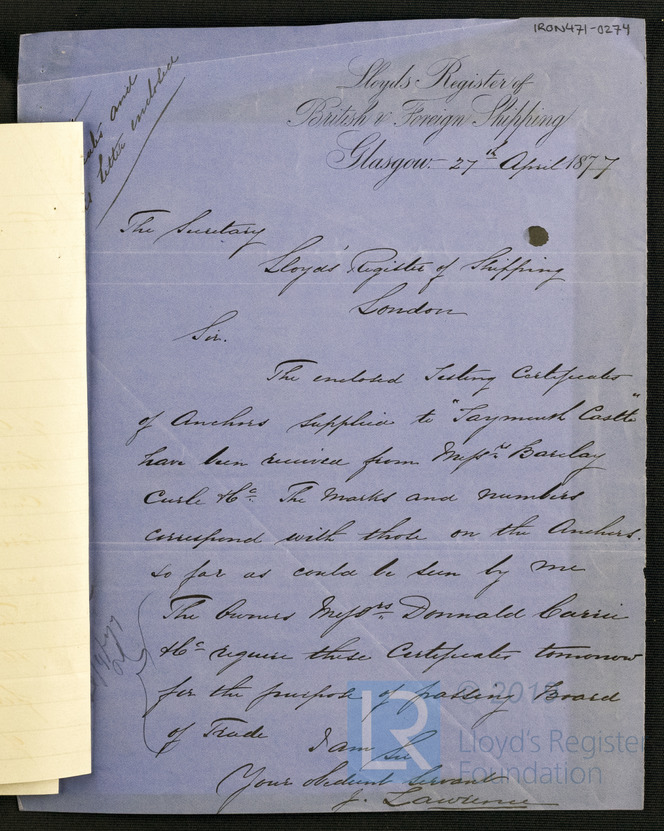 IRON471-0274
Lloyds Register of
British & Foreign Shipping
Glasgow 27th April 1877
and
letter enclosed
The Secretary
Lloyds' Register of Shipping
London
Sir.
The enclosed Testing Certificates
of Anchors supplied to "Taymouth Castle"
have been received from Messrs Barclay
Curle & Co. The Marks and numbers
correspond with those on the Anchors.
so far as could be seen by me
The Owners Messrs. Donnald Currie
& Co require these Certificates tomorrow
for the purpose of passing Board
of Trade
I am Sir
Your obedient Servant
J. Lawrence
LR
Lloyd's Register
Foundation